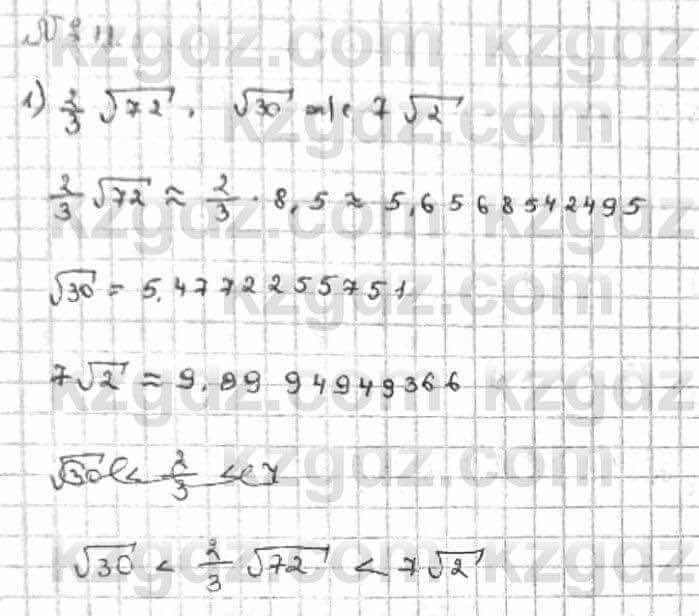 1) 2/3 √72, √30 7√2
2/3 √72 ≈ 2/3 · 8,5 ≈ 5,656854 2495
√30 = 5.4772255751
7√2 ≈ 9.899 94949366
√30 < 2/3 √72 < 7√2
kzgdz.com